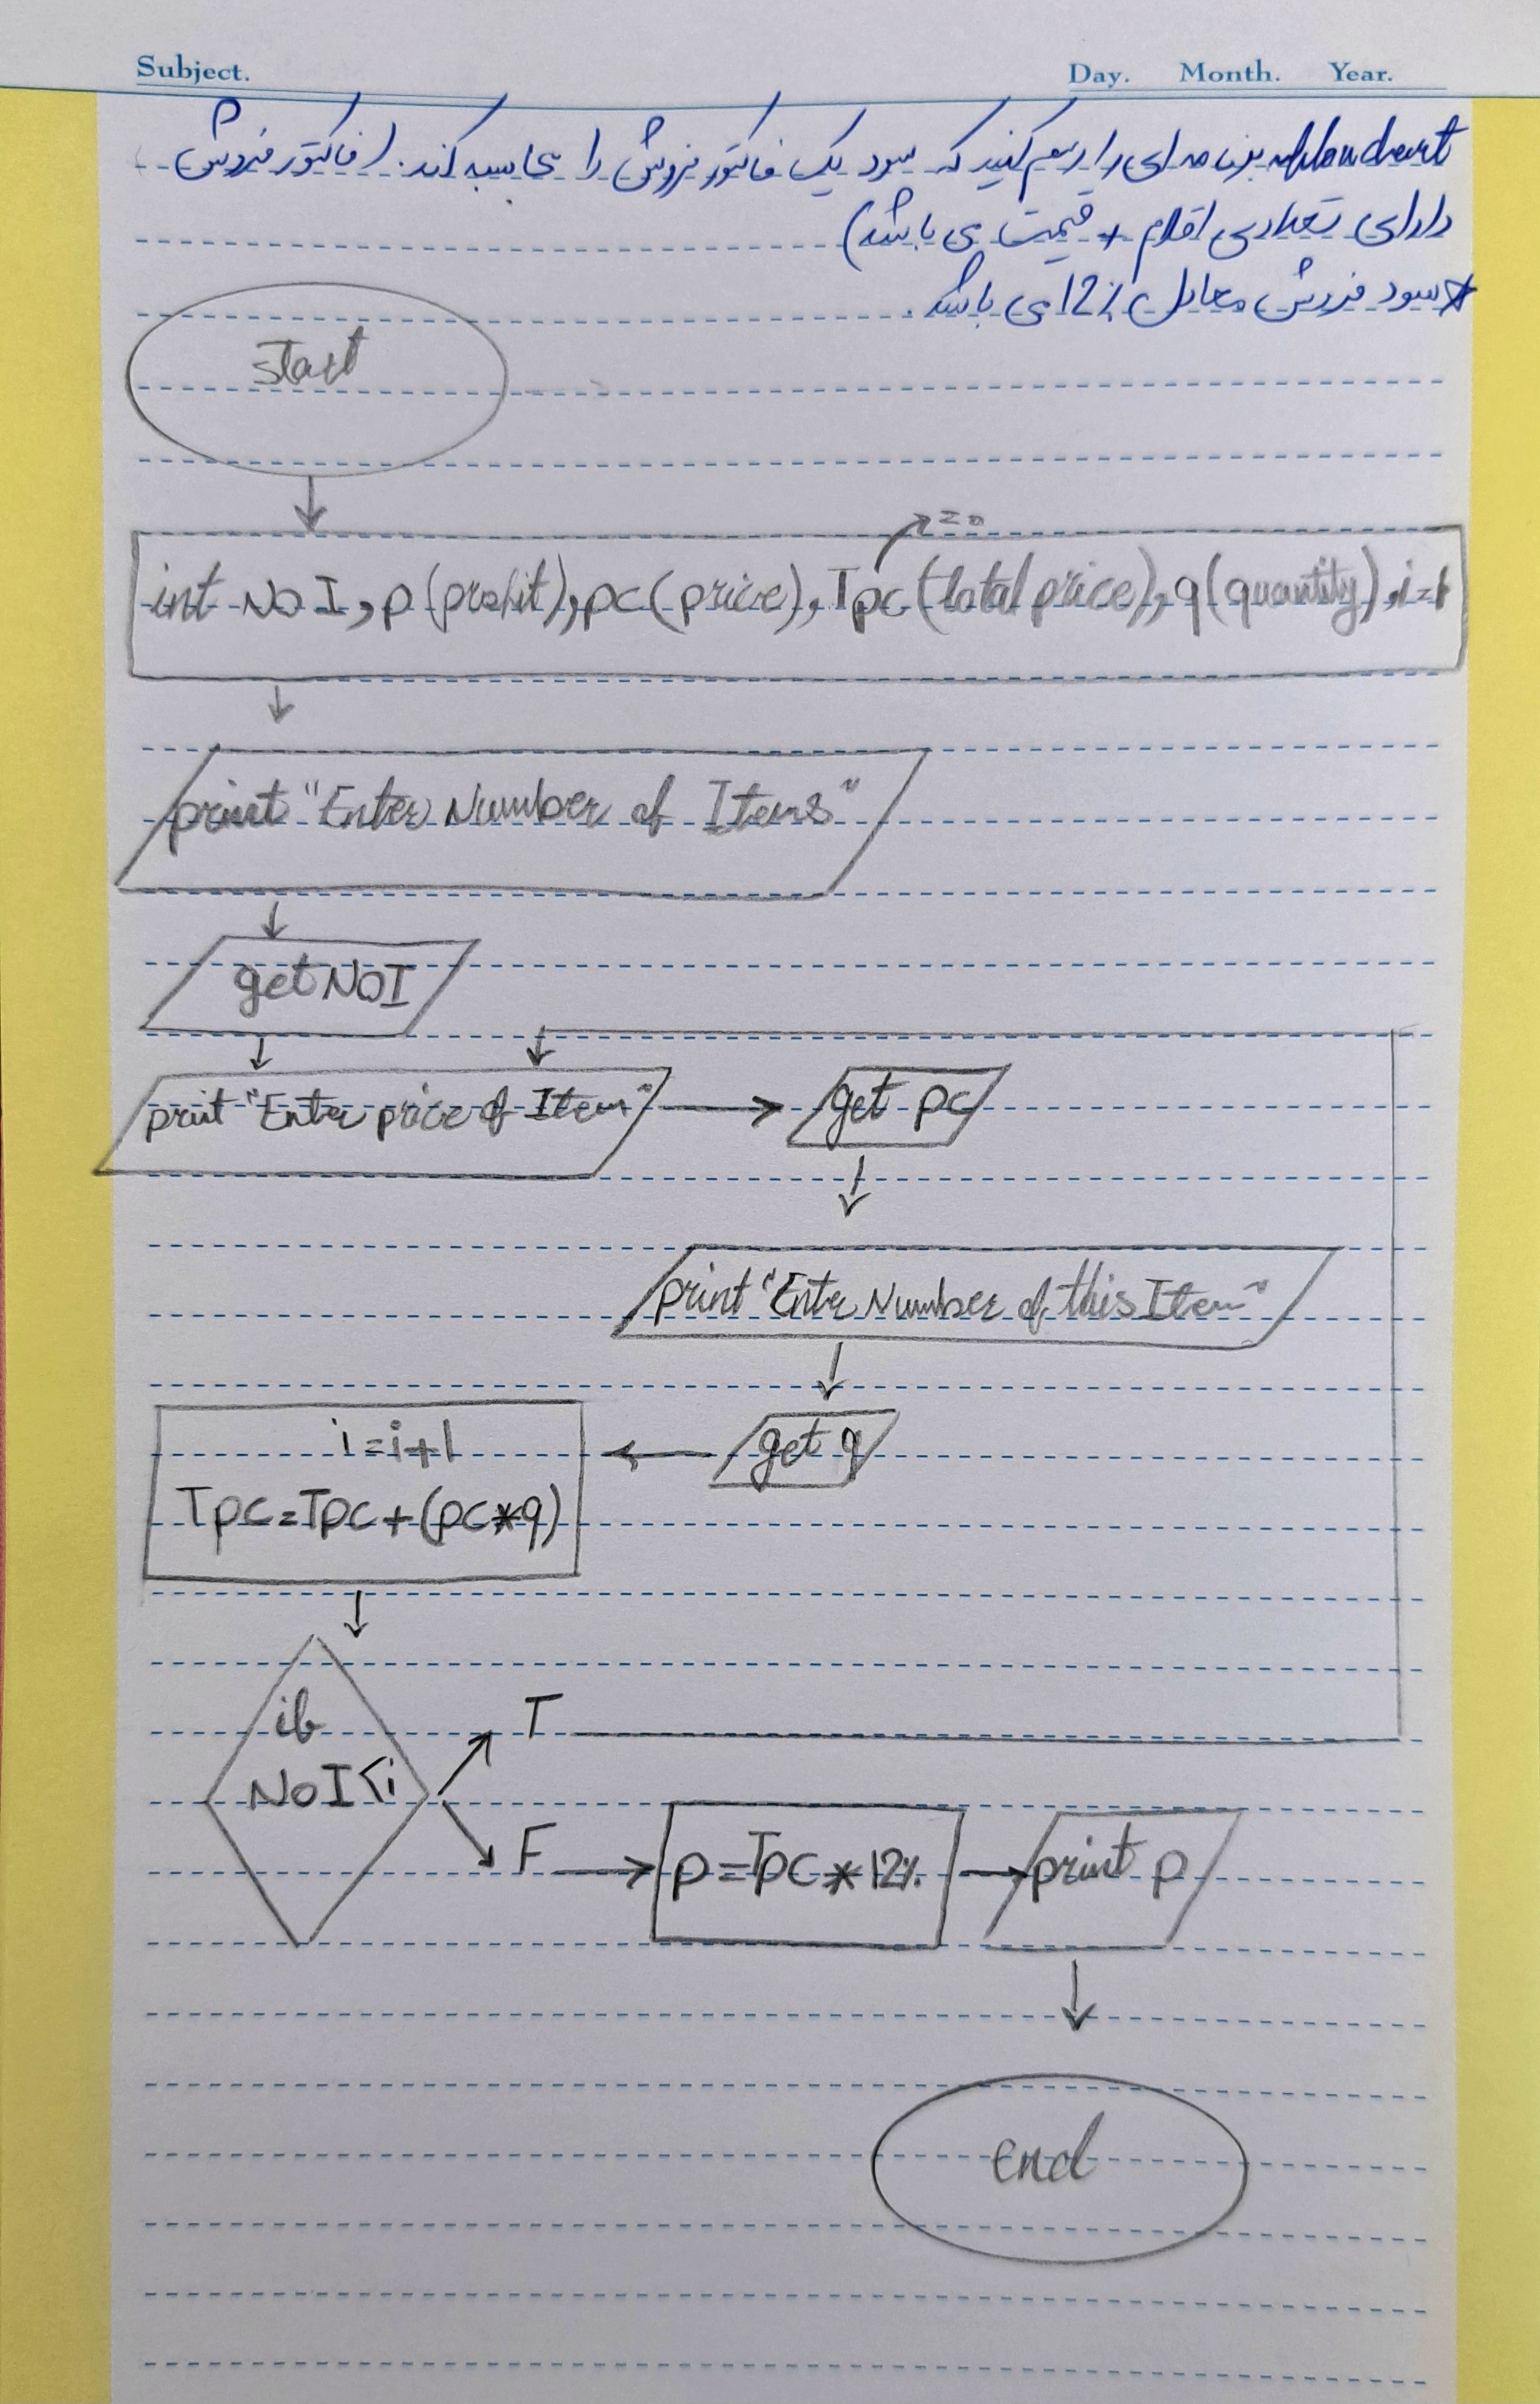 Subject.
Day. Month. Year.
flowchart برنامه ای را رسم کنید که سود یک فاکتور فروش را محاسبه کند. (فاکتور فروش
دارای تعدادی اقلام + قیمت می باشد)
*سود فروش معادل 12% می باشد.
start
=0
int NoI, p(profit), pc(price), Tpc(total price), q(quantity), i=1
print "Enter Number of Items"
get NOI
print "Enter price of Item"
get pc
print "Enter Number of this Item"
get q
i=i+1
Tpc=Tpc+(pc*q)
if
NoI<i
T
F
p=Tpc*12%
print p
end